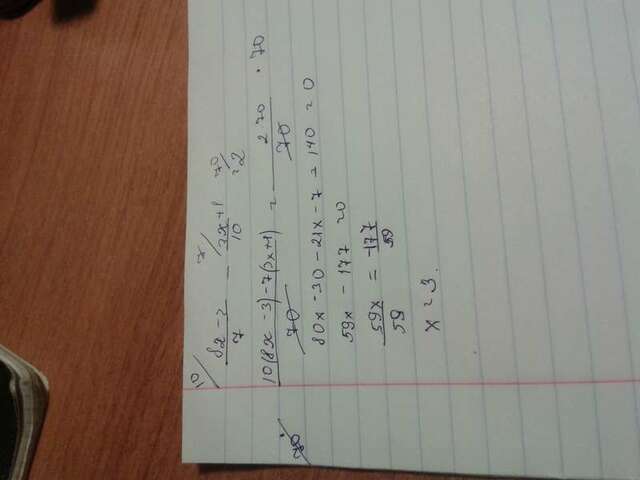 10/ (8x-3)/7 - 7/ (3x+1)/10 70/ =2
10(8x-3)-7(3x+1)/70 = 2 70/70 · 70
80x-30-21x-7=140=0
59x-177=0
59x/59 = -177/59
x=3.